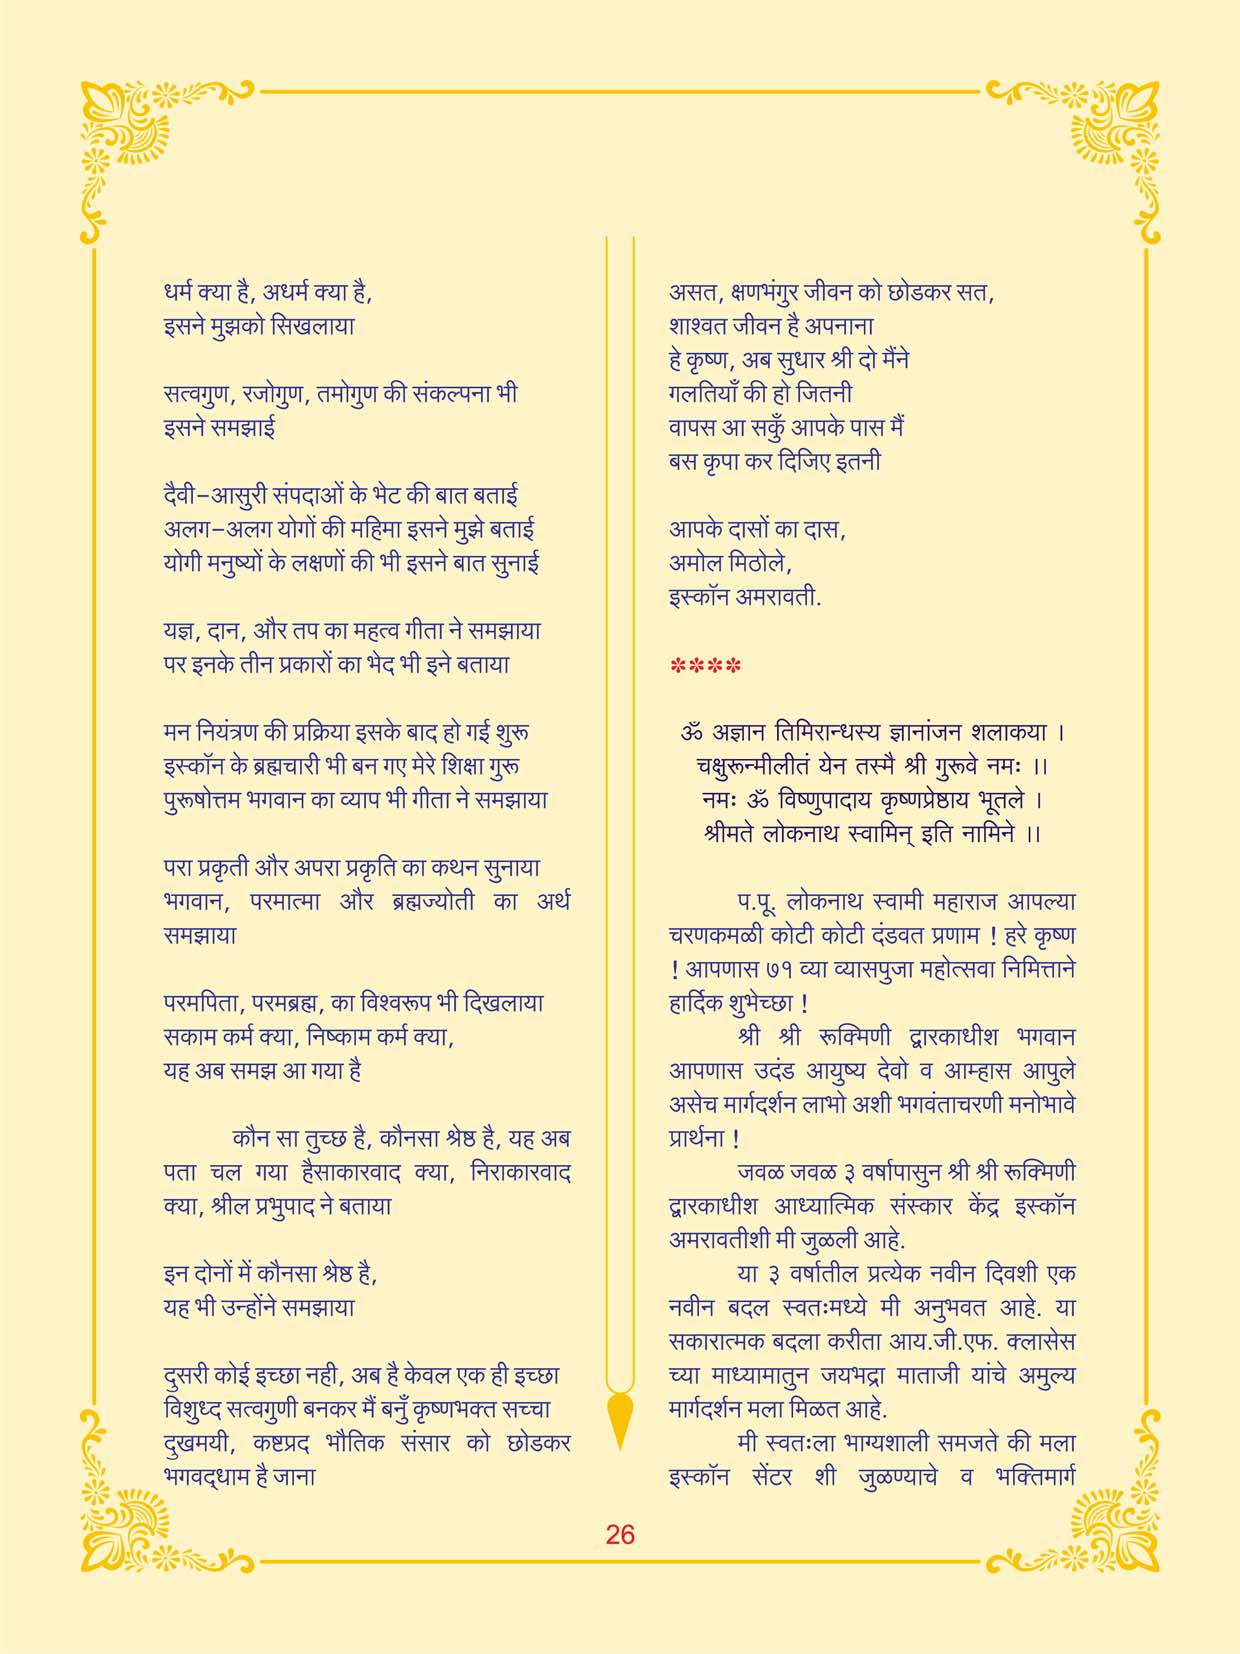 धर्म क्या है, अधर्म क्या है,
इसने मुझको सिखलाया
सत्वगुण, रजोगुण, तमोगुण की संकल्पना भी
इसने समझाई
दैवी–आसुरी संपदाओं के भेट की बात बताई
अलग–अलग योगों की महिमा इसने मुझे बताई
योगी मनुष्यों के लक्षणों की भी इसने बात सुनाई
यज्ञ, दान, और तप का महत्व गीता ने समझाया
पर इनके तीन प्रकारों का भेद भी इने बताया
मन नियंत्रण की प्रक्रिया इसके बाद हो गई शुरू
इस्कॉन के ब्रह्मचारी भी बन गए मेरे शिक्षा गुरू
पुरूषोत्तम भगवान का व्याप भी गीता ने समझाया
परा प्रकृती और अपरा प्रकृति का कथन सुनाया
भगवान, परमात्मा और ब्रह्मज्योती का अर्थ
समझाया
परमपिता, परमब्रह्म, का विश्वरूप भी दिखलाया
सकाम कर्म क्या, निष्काम कर्म क्या,
यह अब समझ आ गया है
कौन सा तुच्छ है, कौनसा श्रेष्ठ है, यह अब
पता चल गया हैसाकारवाद क्या, निराकारवाद
क्या, श्रील प्रभुपाद ने बताया
इन दोनों में कौनसा श्रेष्ठ है,
यह भी उन्होंने समझाया
दुसरी कोई इच्छा नही, अब है केवल एक ही इच्छा
विशुध्द सत्वगुणी बनकर मैं बनुँ कृष्णभक्त सच्चा
दुखमयी, कष्टप्रद भौतिक संसार को छोडकर
भगवद्धाम है जाना
असत, क्षणभंगुर जीवन को छोडकर सत,
शाश्वत जीवन है अपनाना
हे कृष्ण, अब सुधार श्री दो मैंने
गलतियाँ की हो जितनी
वापस आ सकुँ आपके पास मैं
बस कृपा कर दिजिए इतनी
आपके दासों का दास,
अमोल मिठोले,
इस्कॉन अमरावती.
****
ॐ अज्ञान तिमिरान्धस्य ज्ञानांजन शलाकया ।
चक्षुरून्मीलीतं येन तस्मै श्री गुरूवे नमः ।।
नमः ॐ विष्णुपादाय कृष्णप्रेष्ठाय भूतले ।
श्रीमते लोकनाथ स्वामिन् इति नामिने ।।
प.पू. लोकनाथ स्वामी महाराज आपल्या
चरणकमळी कोटी कोटी दंडवत प्रणाम ! हरे कृष्ण
! आपणास ७१ व्या व्यासपुजा महोत्सवा निमित्ताने
हार्दिक शुभेच्छा !
श्री श्री रूक्मिणी द्वारकाधीश भगवान
आपणास उदंड आयुष्य देवो व आम्हास आपुले
असेच मार्गदर्शन लाभो अशी भगवंताचरणी मनोभावे
प्रार्थना !
जवळ जवळ ३ वर्षापासुन श्री श्री रूक्मिणी
द्वारकाधीश आध्यात्मिक संस्कार केंद्र इस्कॉन
अमरावतीशी मी जुळली आहे.
या ३ वर्षातील प्रत्येक नवीन दिवशी एक
नवीन बदल स्वतःमध्ये मी अनुभवत आहे. या
सकारात्मक बदला करीता आय.जी.एफ. क्लासेस
च्या माध्यामातुन जयभद्रा माताजी यांचे अमुल्य
मार्गदर्शन मला मिळत आहे.
मी स्वतःला भाग्यशाली समजते की मला
इस्कॉन सेंटर शी जुळण्याचे व भक्तिमार्ग
26